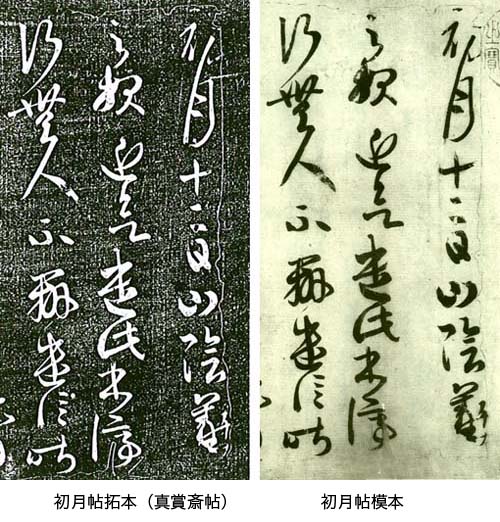 初月十二日山陰羲
之報近欲遣此書停
行無人不辨遣信昨
初月十二日山陰羲
之報近欲遣此書停
行無人不辨遣信昨
初月帖拓本（真賞斎帖）
初月帖模本